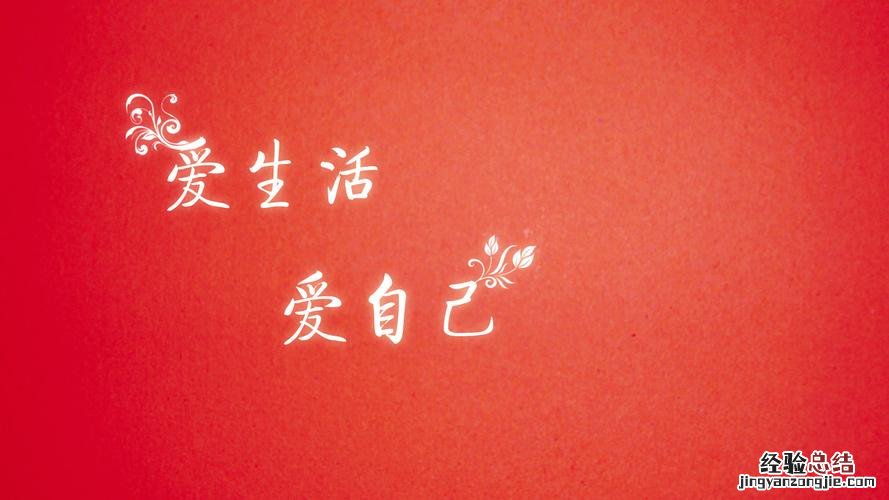 爱生活
爱自己
经验总结
jingyanzongjie.com